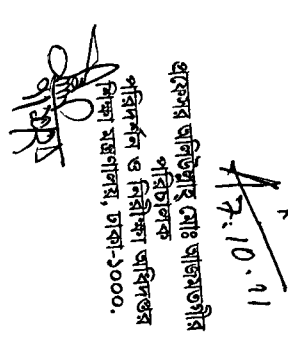 প্রফেসর অলিউল্লাহ্ মোঃ আজমতগীর
পরিচালক
পরিদর্শন ও নিরীক্ষা অধিদপ্তর
শিক্ষা মন্ত্রণালয়, ঢাকা-১০০০.